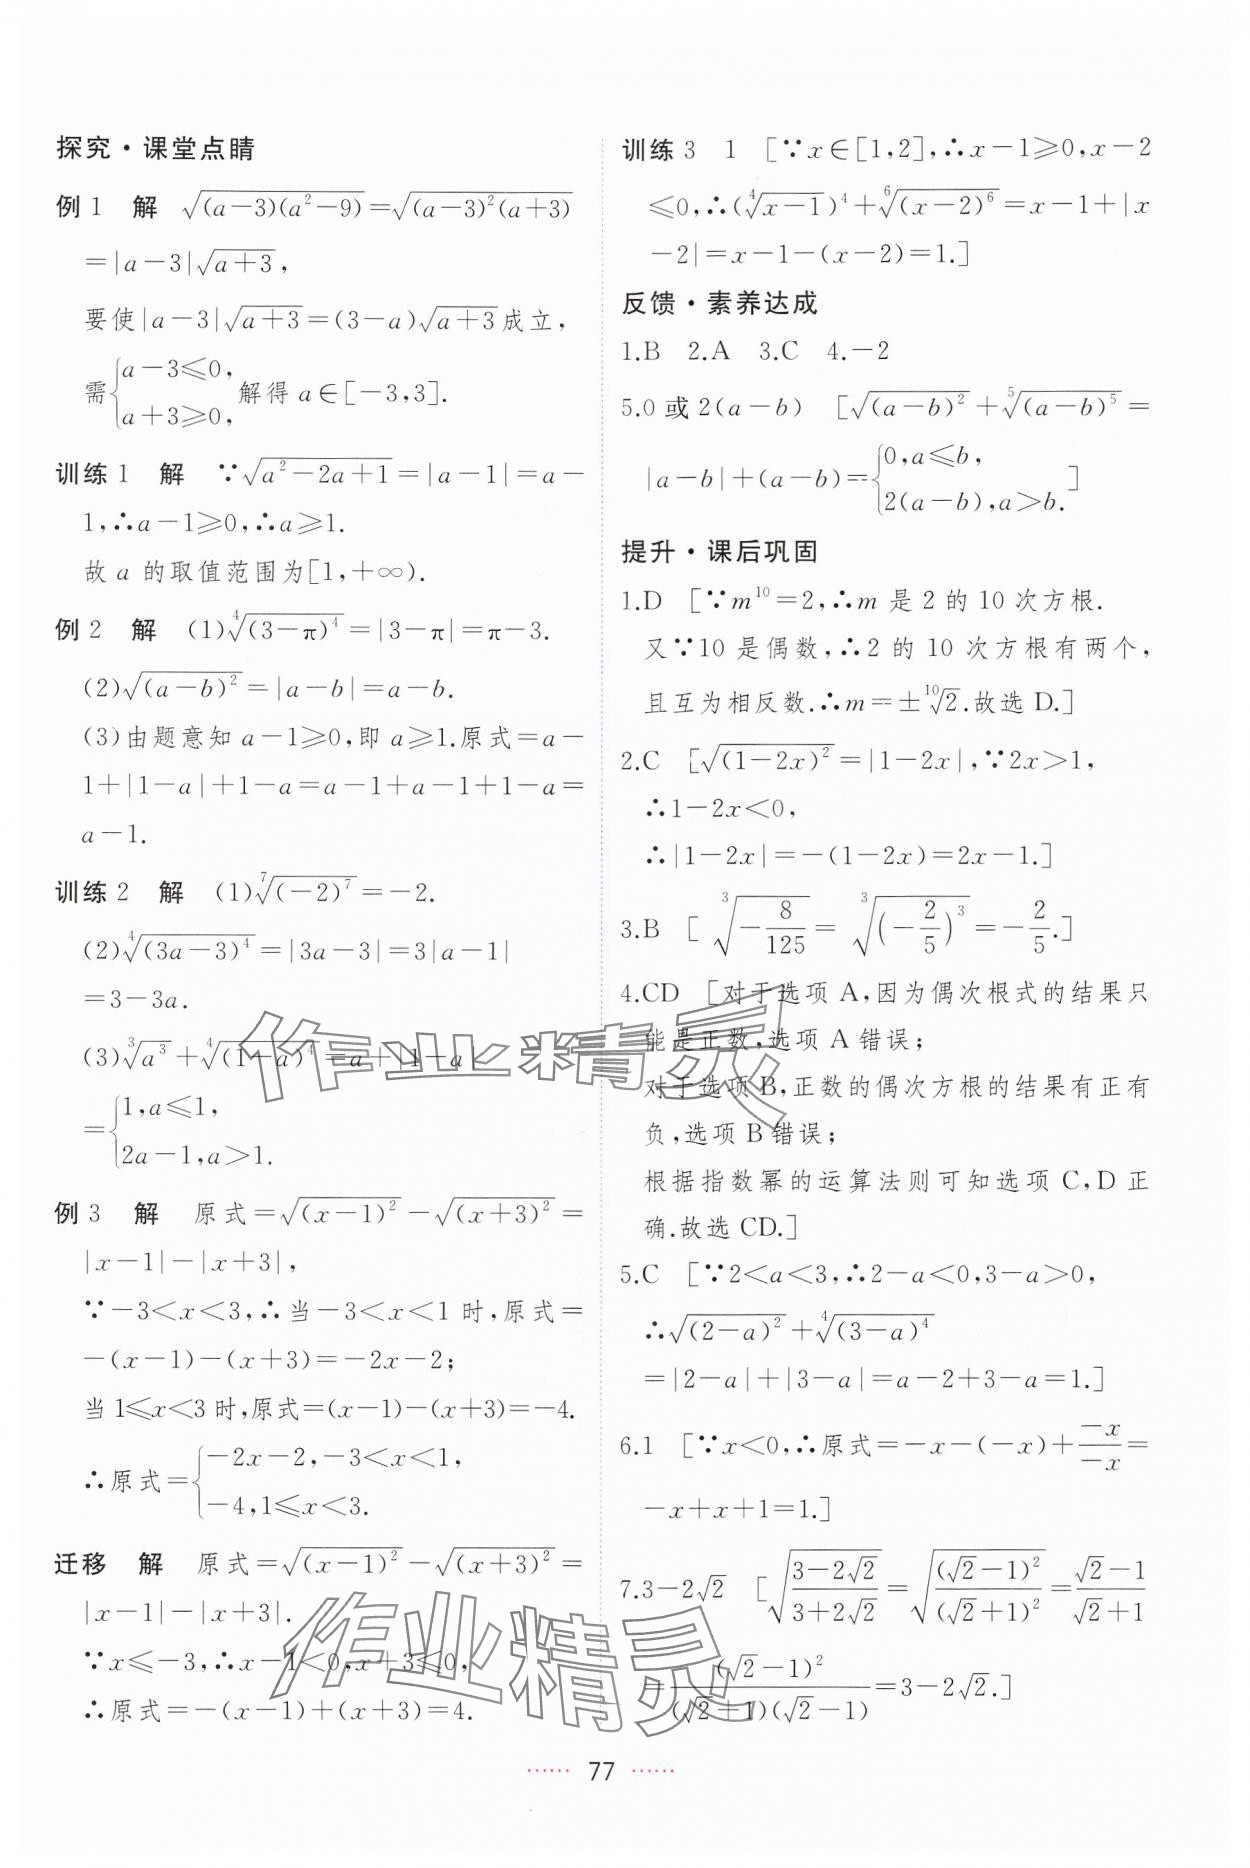 探究·课堂点睛
例1 解 √((a-3)(a²-9))=√((a-3)²(a+3))
=|a-3|√(a+3),
要使|a-3|√(a+3)=(3-a)√(a+3)成立,
需{a-3≤0, a+3≥0, 解得a∈[-3,3].
训练1 解 ∵√(a²-2a+1)=|a-1|=a-
1,∴a-1≥0,∴a≥1.
故a的取值范围为[1,+∞).
例2 解 (1)⁴√((3-π)⁴)=|3-π|=π-3.
(2)√((a-b)²)=|a-b|=a-b.
(3)由题意知a-1≥0,即a≥1.原式=a-
1+|1-a|+1-a=a-1+a-1+1-a=
a-1.
训练2 解 (1)⁷√((-2)⁷)=-2.
(2)⁴√((3a-3)⁴)=|3a-3|=3|a-1|
=3-3a.
(3)³√(a³)+⁴√((1-a)⁴)=a+|1-a|
={1,a≤1, 2a-1,a>1.
例3 解 原式=√((x-1)²)-√((x+3)²)=
|x-1|-|x+3|,
∵-3<x<3,∴当-3<x<1时,原式=
-(x-1)-(x+3)=-2x-2;
当1≤x<3时,原式=(x-1)-(x+3)=-4.
∴原式={-2x-2,-3<x<1, -4,1≤x<3.
迁移 解 原式=√((x-1)²)-√((x+3)²)=
|x-1|-|x+3|.
∵x≤-3,∴x-1<0,x+3≤0,
∴原式=-(x-1)+(x+3)=4.
训练3 1 [∵x∈[1,2],∴x-1≥0,x-2
≤0,∴(⁴√(x-1))⁴+⁶√((x-2)⁶)=x-1+|x
-2|=x-1-(x-2)=1.]
反馈·素养达成
1.B 2.A 3.C 4.-2
5.0或2(a-b) [√((a-b)²)+⁵√((a-b)⁵)=
|a-b|+(a-b)={0,a≤b, 2(a-b),a>b.]
提升·课后巩固
1.D [∵m¹⁰=2,∴m是2的10次方根.
又∵10是偶数,∴2的10次方根有两个,
且互为相反数.∴m=±¹⁰√2.故选D.]
2.C [√((1-2x)²)=|1-2x|,∵2x>1,
∴1-2x<0,
∴|1-2x|=-(1-2x)=2x-1.]
3.B [³√(-8/125)=³√((-2/5)³)=-2/5.]
4.CD [对于选项A,因为偶次根式的结果只
能是正数,选项A错误;
对于选项B,正数的偶次方根的结果有正有
负,选项B错误;
根据指数幂的运算法则可知选项C,D正
确.故选CD.]
5.C [∵2<a<3,∴2-a<0,3-a>0,
∴√((2-a)²)+⁴√((3-a)⁴)
=|2-a|+|3-a|=a-2+3-a=1.]
6.1 [∵x<0,∴原式=-x-(-x)+(-x)/(-x)=
-x+x+1=1.]
7.3-2√2 [√((3-2√2)/(3+2√2))=√((√2-1)²/(√2+1)²)=(√2-1)/(√2+1)
=(√2-1)²/((√2+1)(√2-1))=3-2√2.]
作业精灵
作业精灵
······ 77 ······